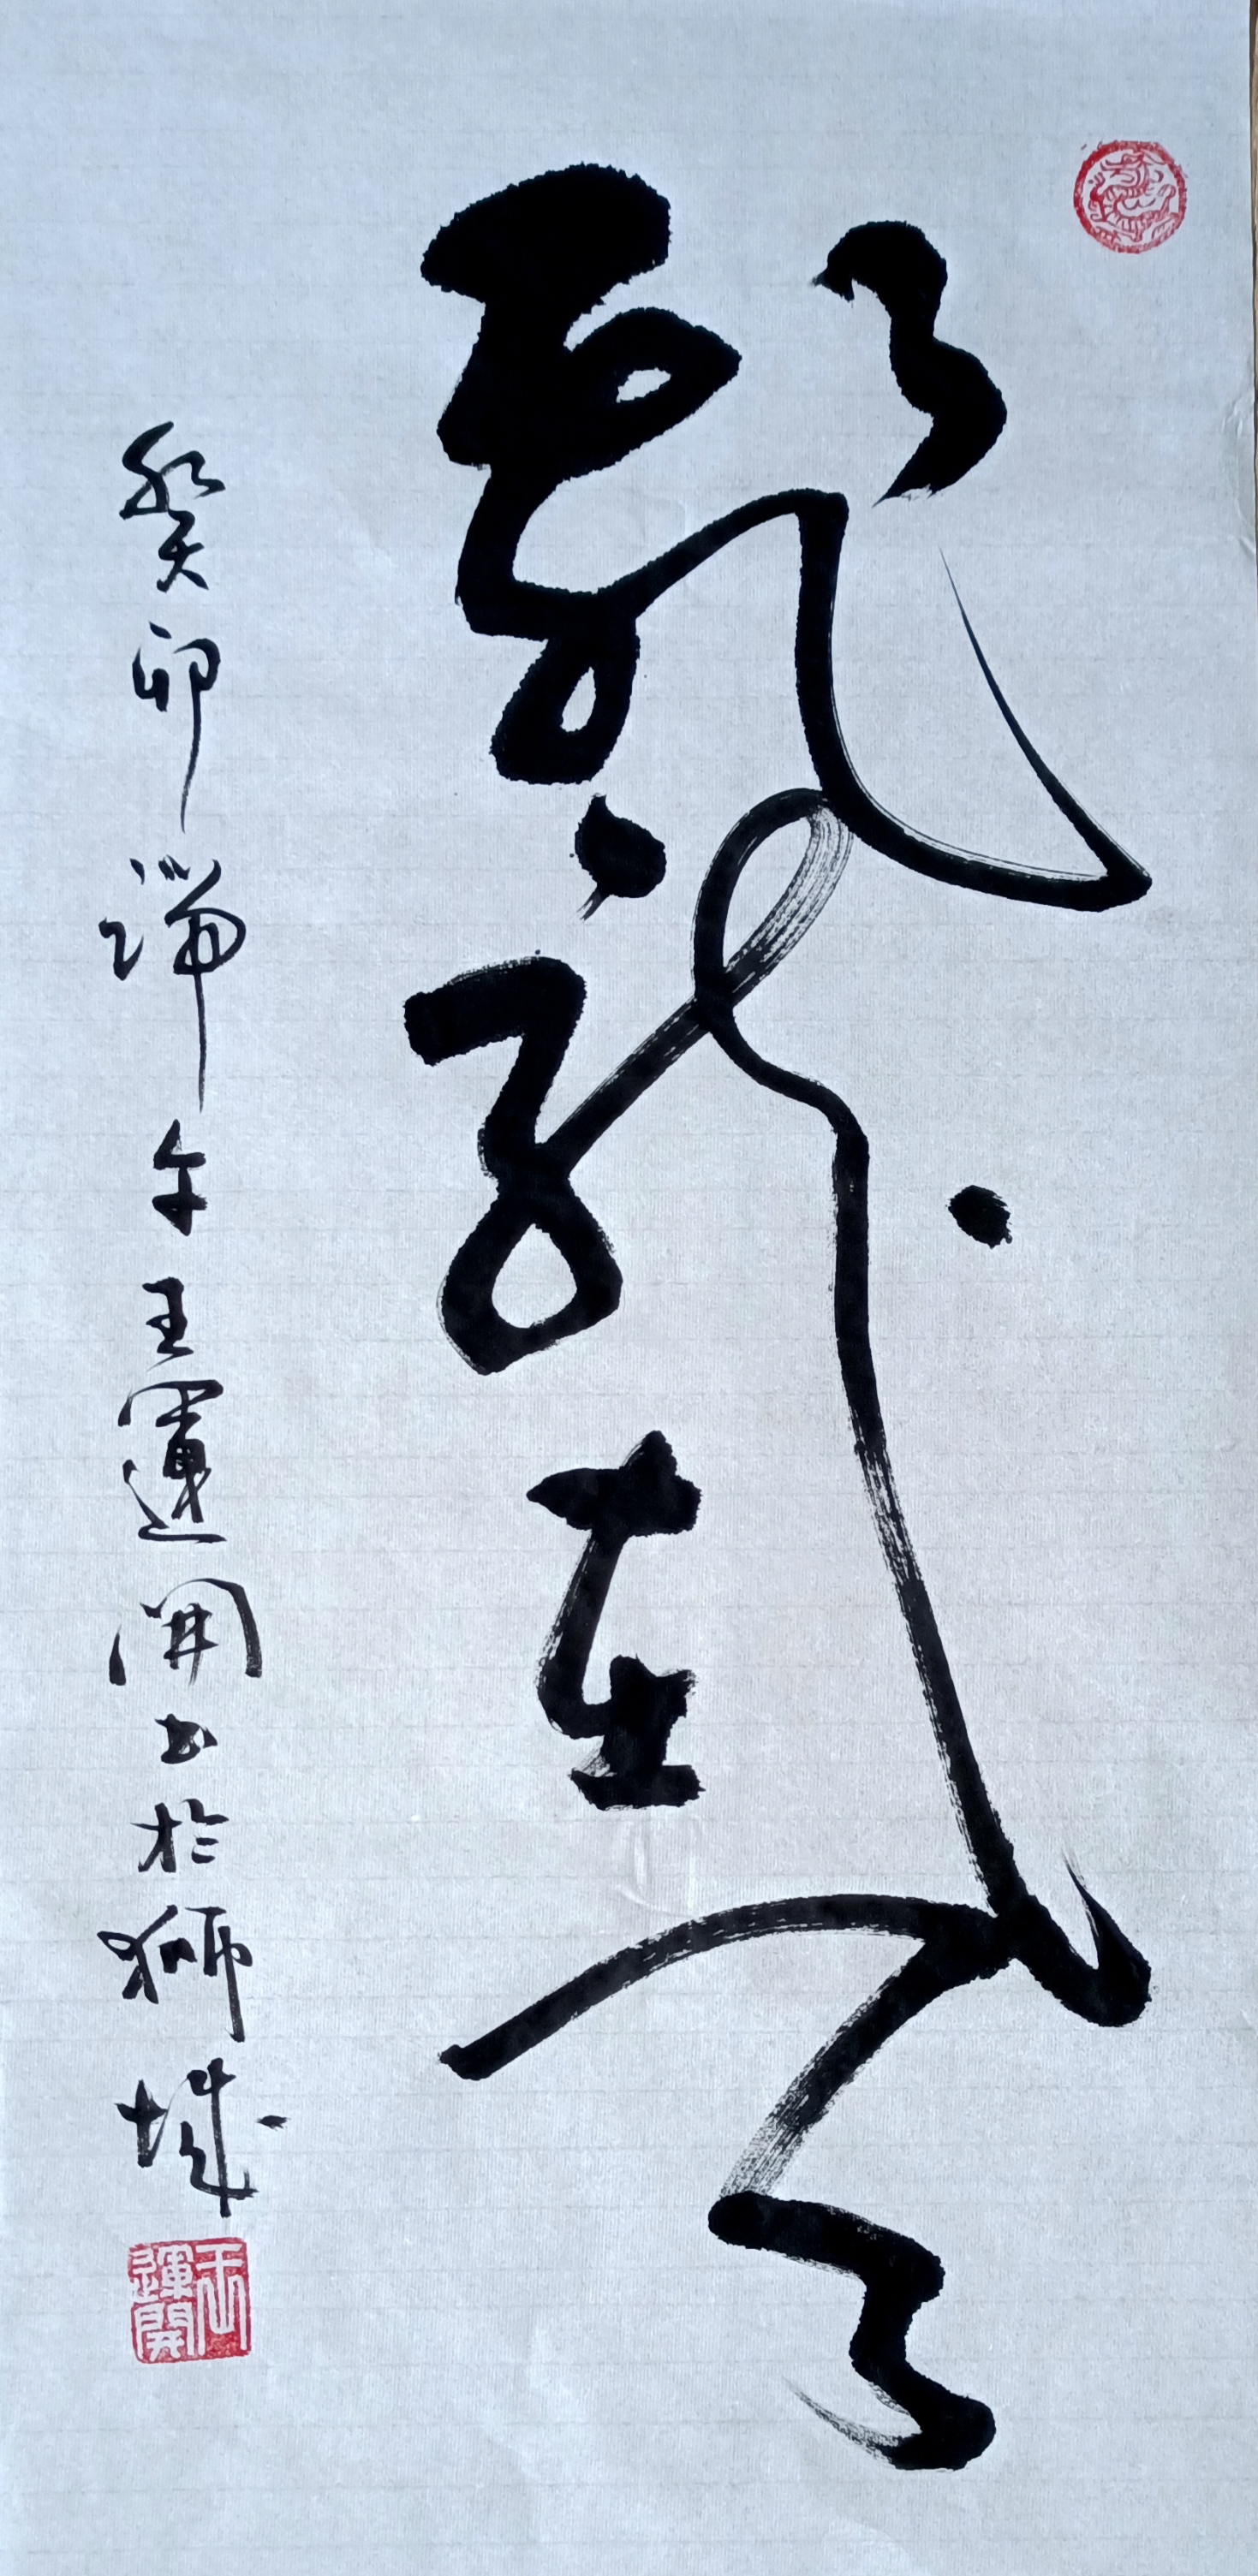 飛龍在天
癸卯端午王運開书於獅城
王運開